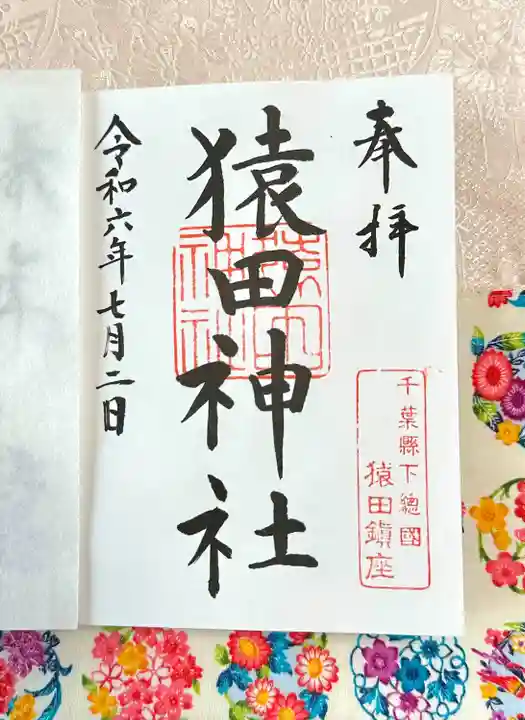 奉拝
千葉縣下總國
猿田鎭座
猿田神社
猿田
神社
令和六年七月二日